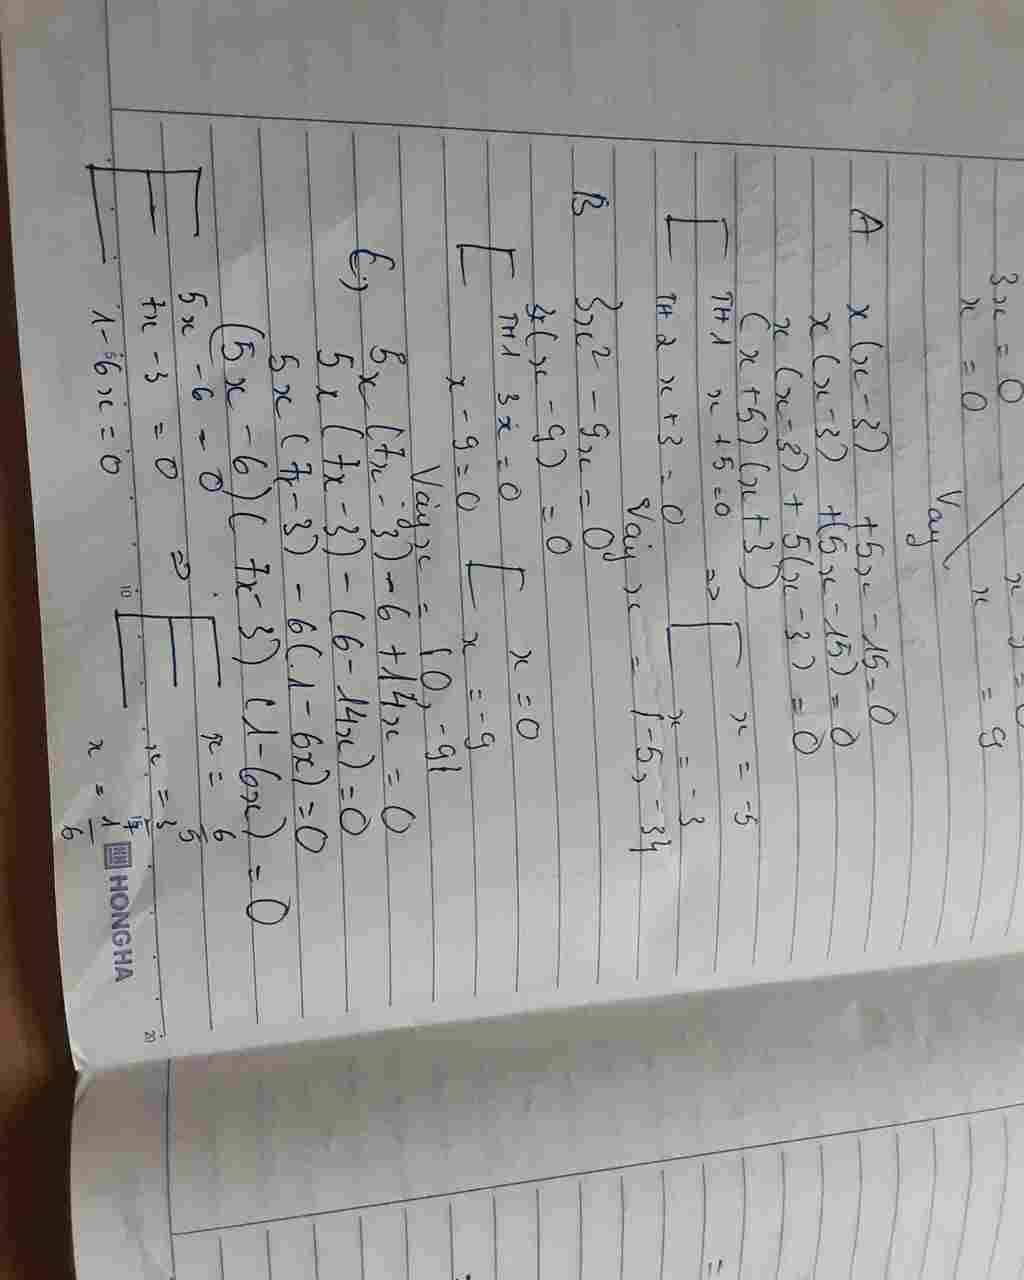 3x = 0
x = 0
x = 9
Vay
A x(x-3) + 5x - 15 = 0
x(x-3) + (5x - 15) = 0
x(x-3) + 5(x-3) = 0
(x+5)(x+3)
TH1 x + 5 = 0 => x = -5
TH2 x + 3 = 0 x = -3
Vậy x = {-5, -3}
B 3x² - 9x = 0
(x - 9) = 0
TH1 3x = 0 x = 0
x - 9 = 0 x = -9
Vậy x = {0, -9}
5x (7x - 3) - 6 + 14x = 0
5x (7x - 3) - (6 - 14x) = 0
5x (7x - 3) - 6(1 - 6x) = 0
(5x - 6)(7x - 3)(1 - 6x) = 0
5x - 6 = 0 x = 6/5
7x - 3 = 0 => x = 3/7
1 - 6x = 0 x = 1/6
10
20
HONG HA